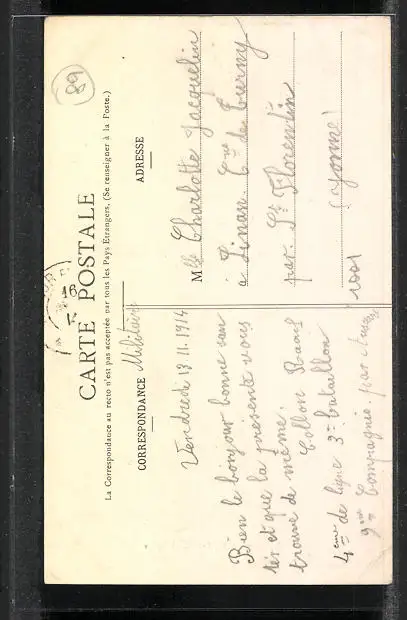 89
CARTE POSTALE
La Correspondance au recto n'est pas acceptée par tous les Pays Étrangers. (Se renseigner à la Poste.)
CORRESPONDANCE Militaire
Vendredi 13 11. 1914
Bien le bonjour bonne san
tés et que la présente vous
trouve de même.
Collon
4ème de ligne 3e bataillon
9me Compagnie. par
ADRESSE
Mlle Charlotte Jacquelin
à Linan Cne de Turny
par St Florentin
(Yonne)